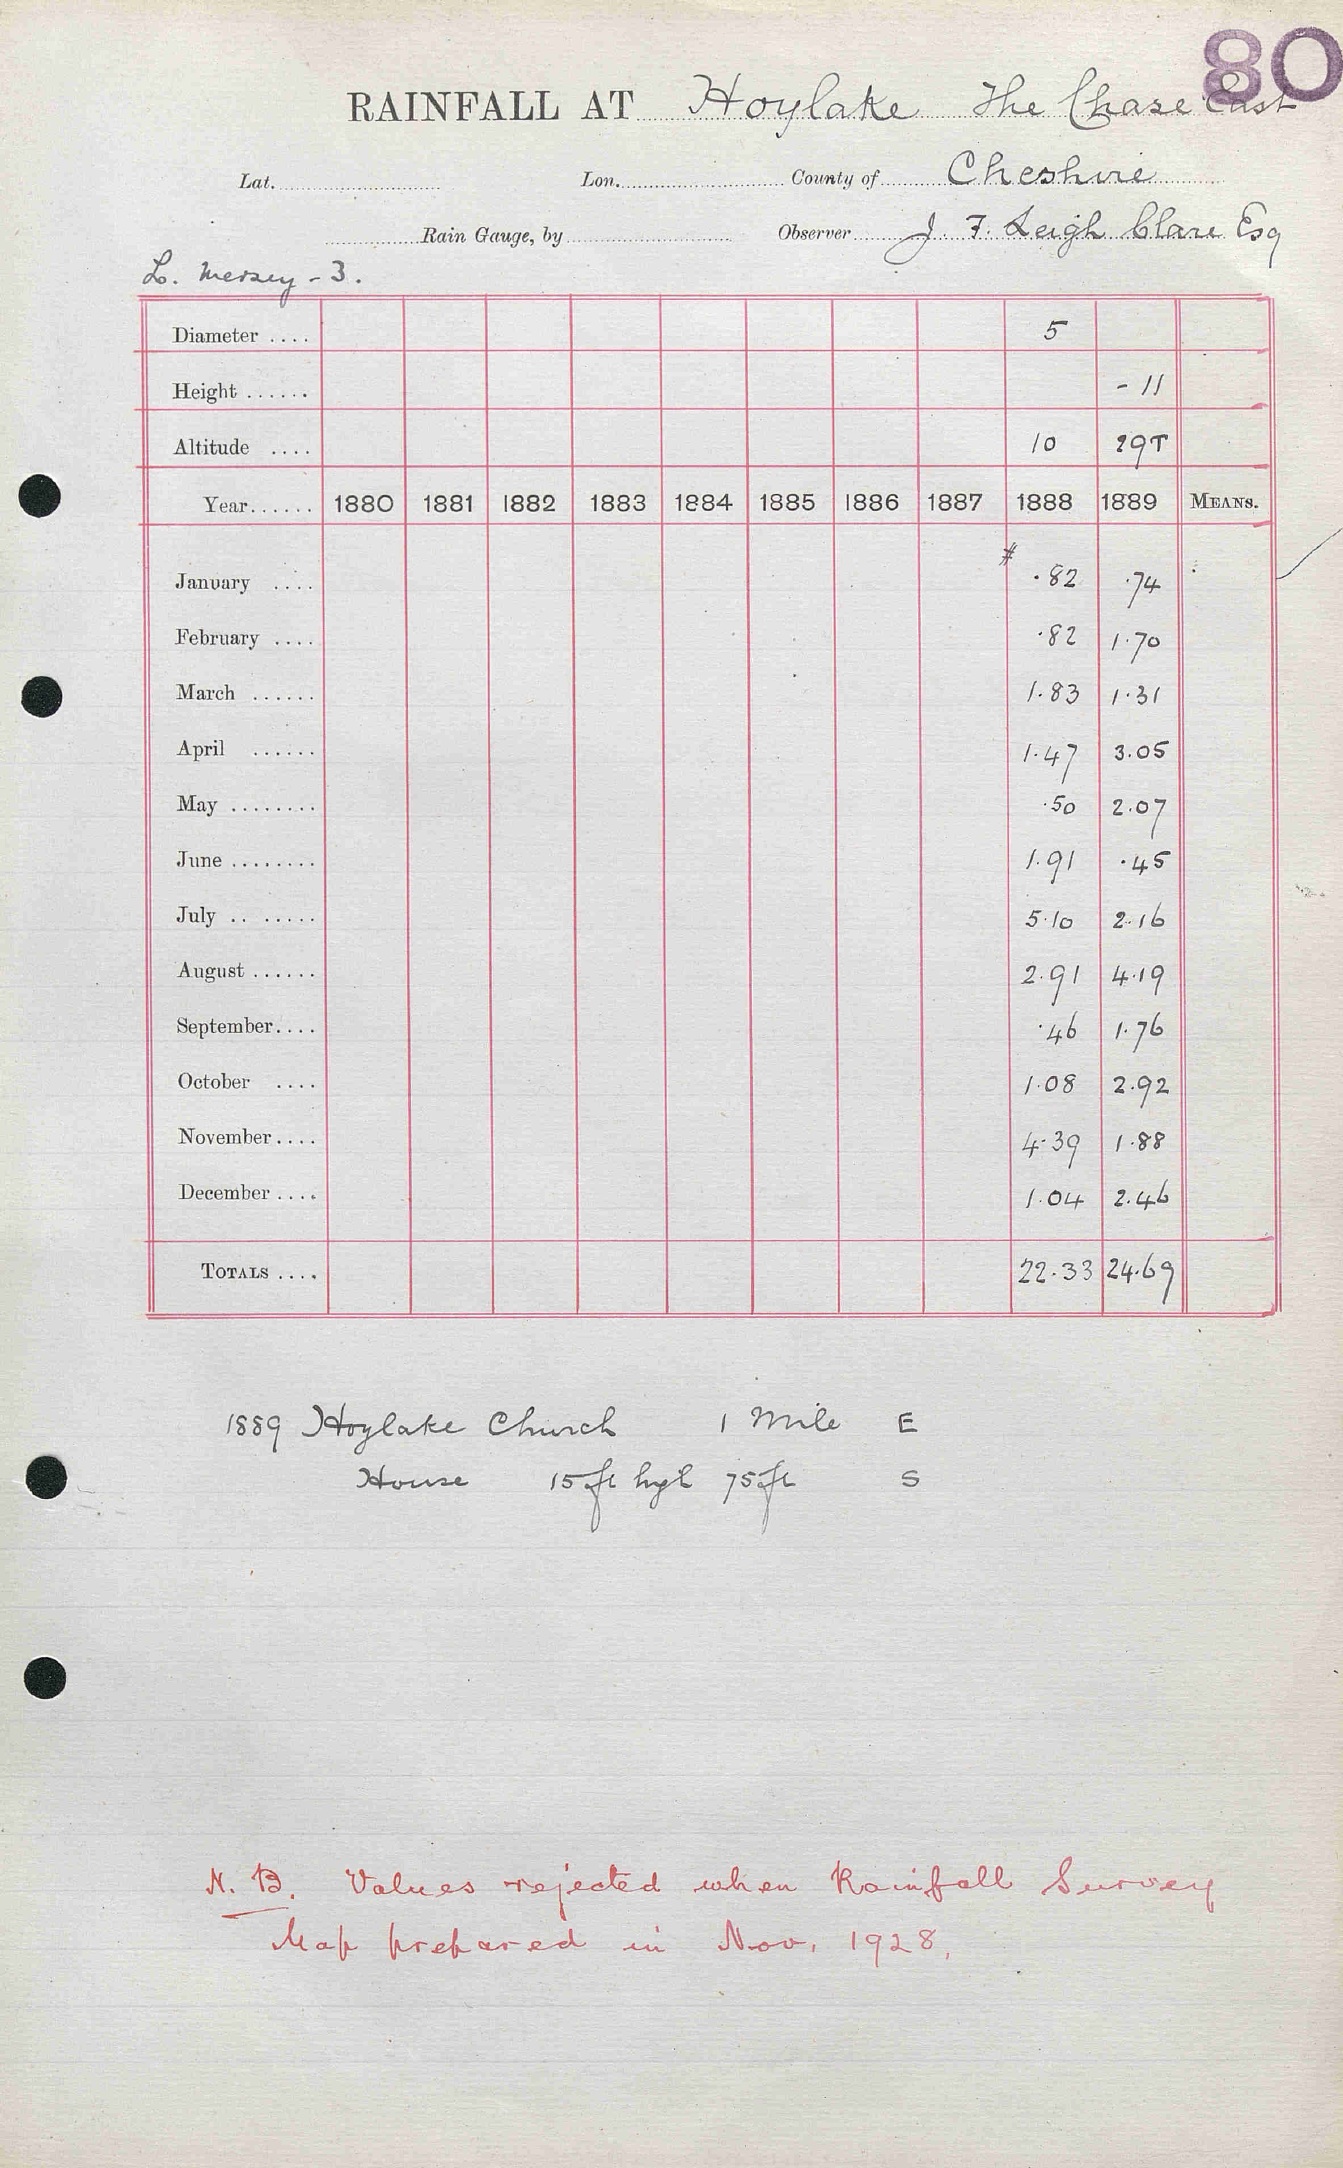 80
RAINFALL AT Hoylake The Chase East
Lat. Lon. County of Cheshire
Rain Gauge, by Observer J. F. Leigh Clare Esq
L. Mersey - 3.
Diameter .... 5
Height ...... - 11
Altitude .... 10 29T
Year...... 1880 1881 1882 1883 1884 1885 1886 1887 1888 1889 MEANS.
#
January .... .82 .74
February .... .82 1.70
March ...... 1.83 1.31
April ...... 1.47 3.05
May ........ .50 2.07
June ........ 1.91 .45
July .. ..... 5.10 2.16
August ...... 2.91 4.19
September.... .46 1.76
October .... 1.08 2.92
November.... 4.39 1.88
December .... 1.04 2.46
TOTALS .... 22.33 24.69
1889 Hoylake Church 1 Mile E
House 15ft high 75ft S
N. B. Values rejected when Rainfall Survey
Map prepared in Nov. 1928.